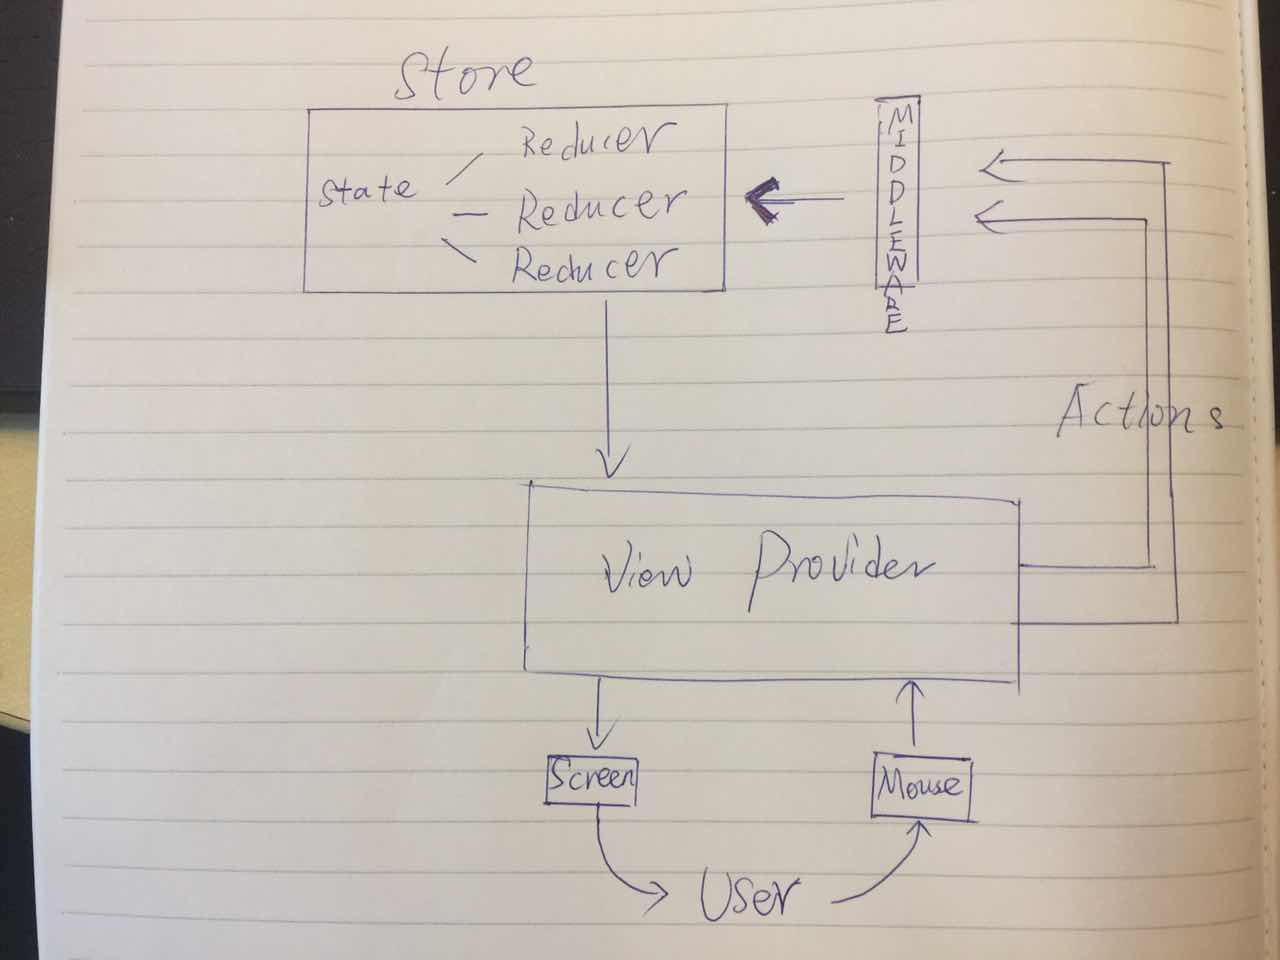 Store
Reducer
State
Reducer
Reducer
MIDDLEWARE
Actions
View Provider
Screen
Mouse
User